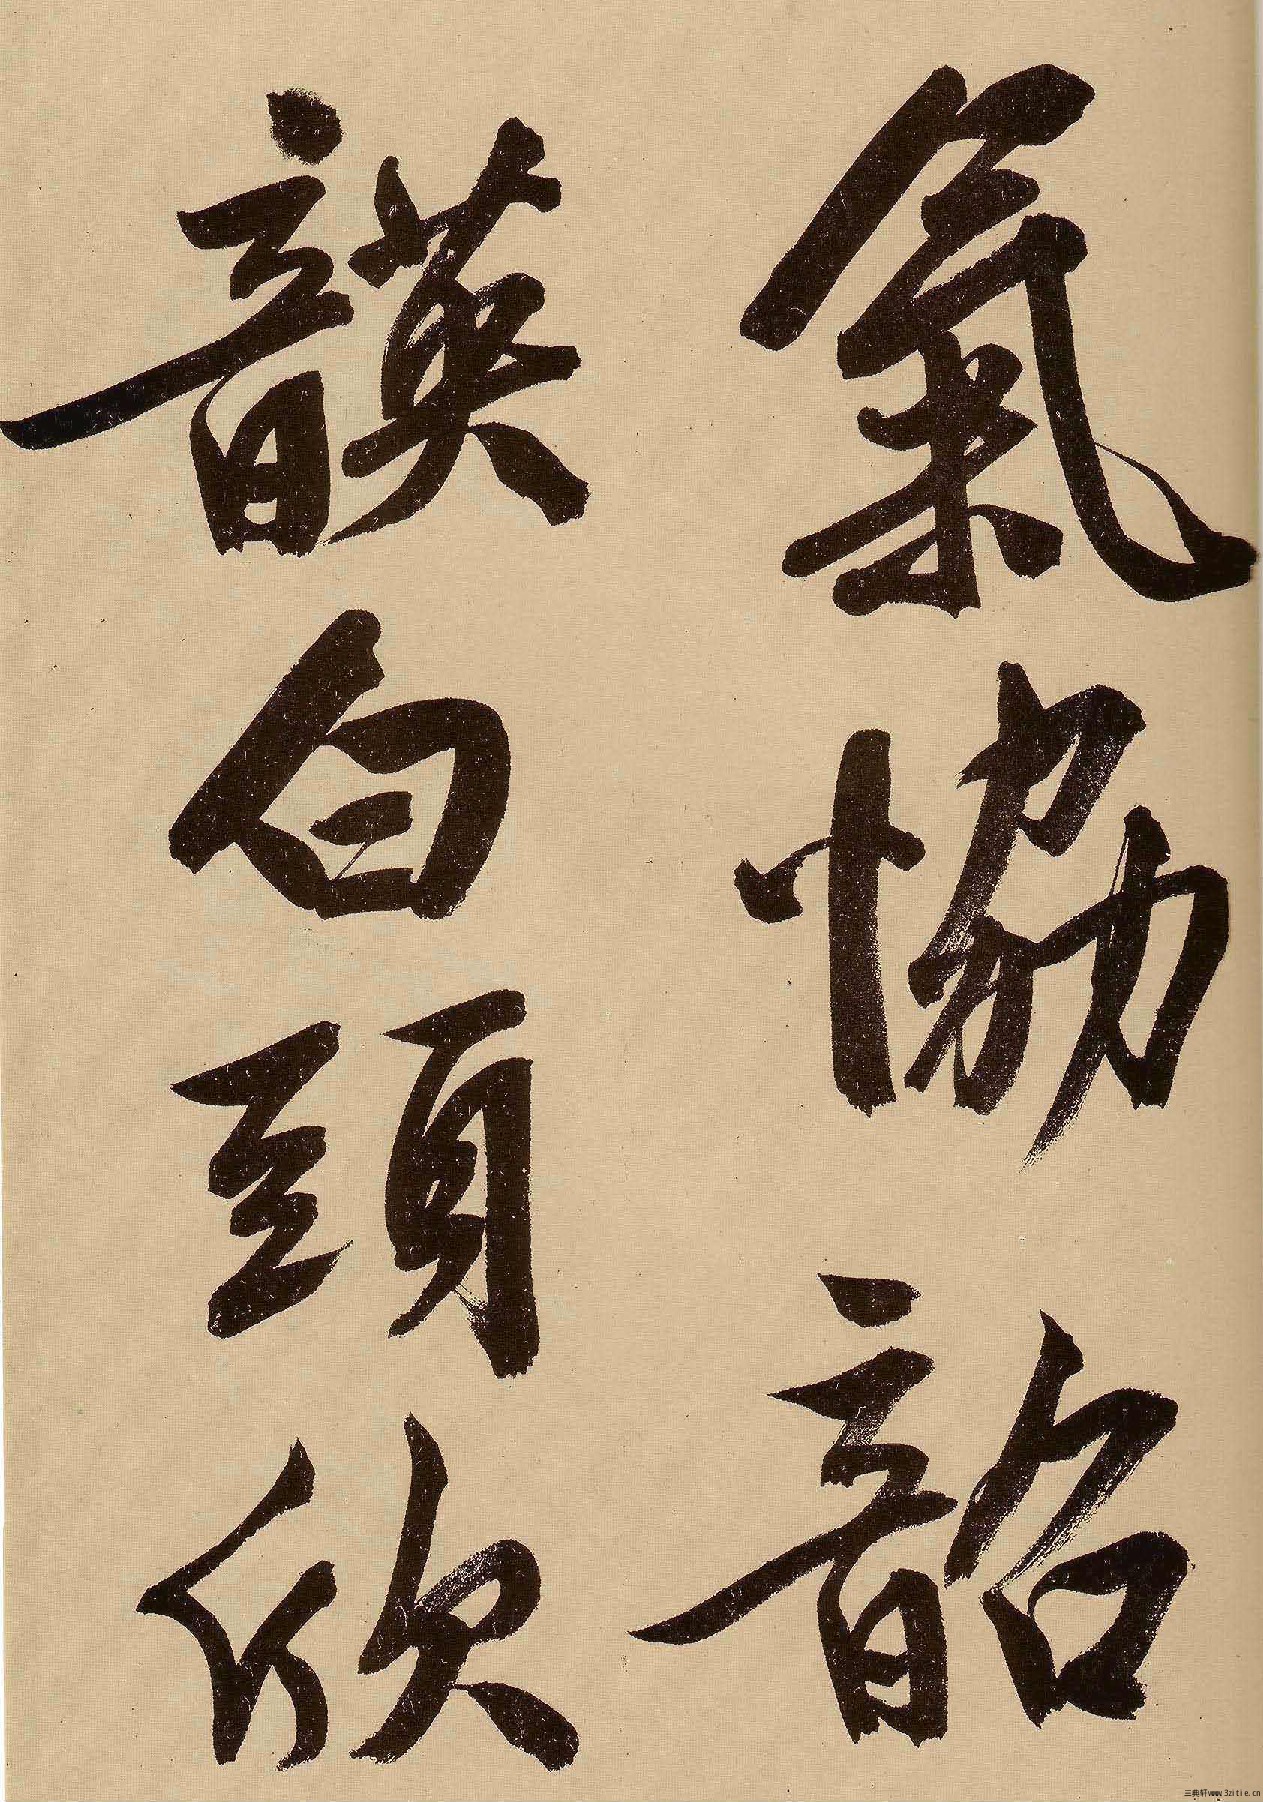 氣協韶
韺白頭欣
三典轩www.3zitie.cn